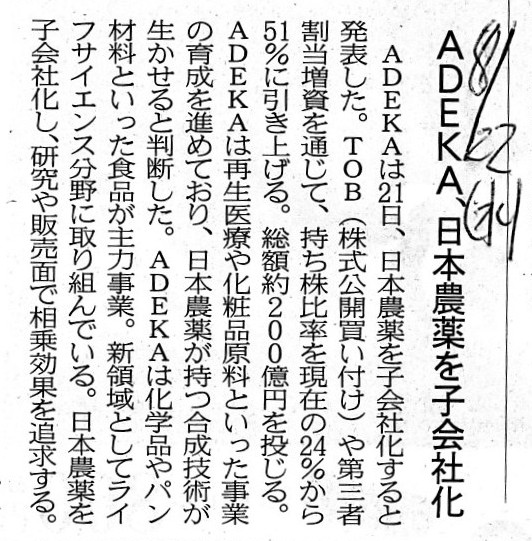 ADEKA、日本農薬を子会社化
8/22
ADEKAは21日、日本農薬を子会社化すると
発表した。TOB（株式公開買い付け）や第三者
割当増資を通じて、持ち株比率を現在の24%から
51%に引き上げる。総額約200億円を投じる。
ADEKAは再生医療や化粧品原料といった事業
の育成を進めており、日本農薬が持つ合成技術が
生かせると判断した。ADEKAは化学品やパン
材料といった食品が主力事業。新領域としてライ
フサイエンス分野に取り組んでいる。日本農薬を
子会社化し、研究や販売面で相乗効果を追求する。